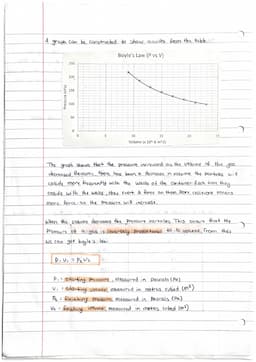 A graph can be constructed to show results from the table.
Boyle's Law (P vs V)
The graph shows that the pressure increased as the volume of the gas
decreased because there has been a decrease in volume the particles will
collide more frequently with the walls of the container. Each time they
collide with the walls, they exert a force on them. More collisions means
more force, so the pressure will increase.
When the volume decreases the pressure increases. This shows that the
pressure of a gas is inversely proportional to its volume. From this
we can get boyle's law.
P₁V₁ = P₂V₂
P₁ = starting pressure, measured in pascals (Pa)
V₁ = starting volume, measured in metres cubed (m³)
P₂ = finishing pressure, measured in pascals (Pa)
V₂ = finishing volume, measured in metres cubed (m³)